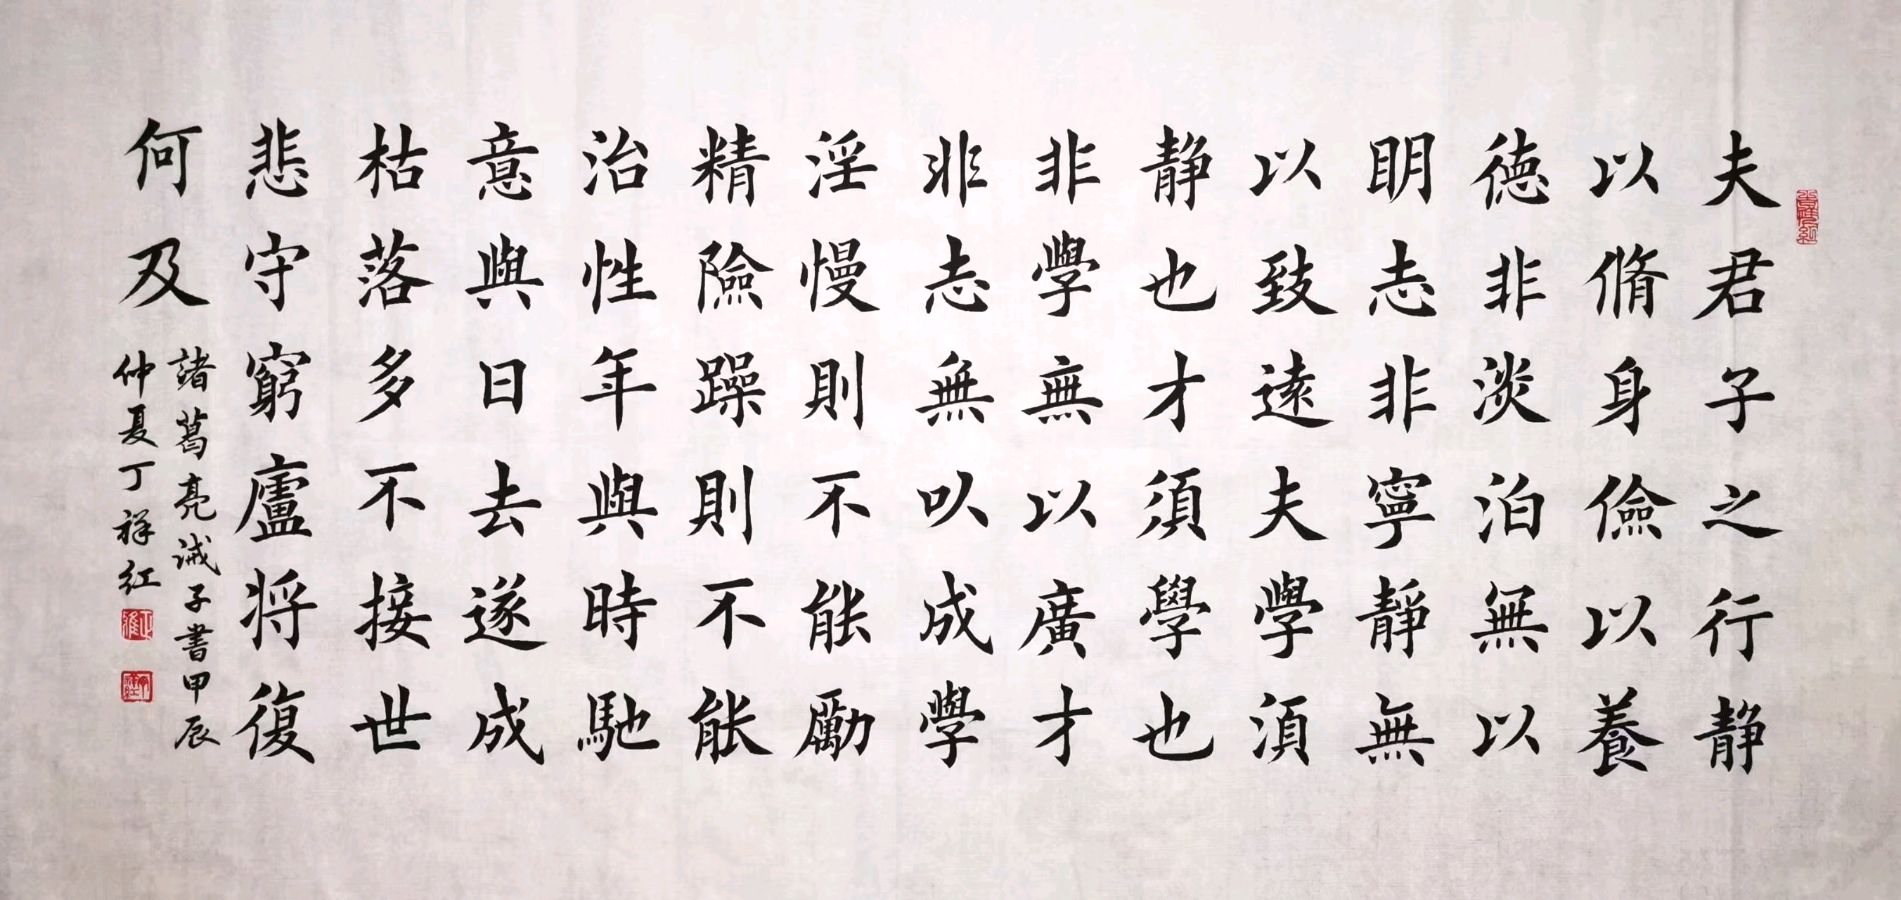 夫君子之行静
以脩身儉以養
徳非淡泊無以
明志非寧靜無
以致遠夫學須
静也才須學也
非學無以廣才
非志無以成學
淫慢則不能勵
精險躁則不能
治性年與時馳
意與日去遂成
枯落多不接世
悲守窮廬将復
何及
諸葛亮誡子書甲辰
仲夏丁祥红